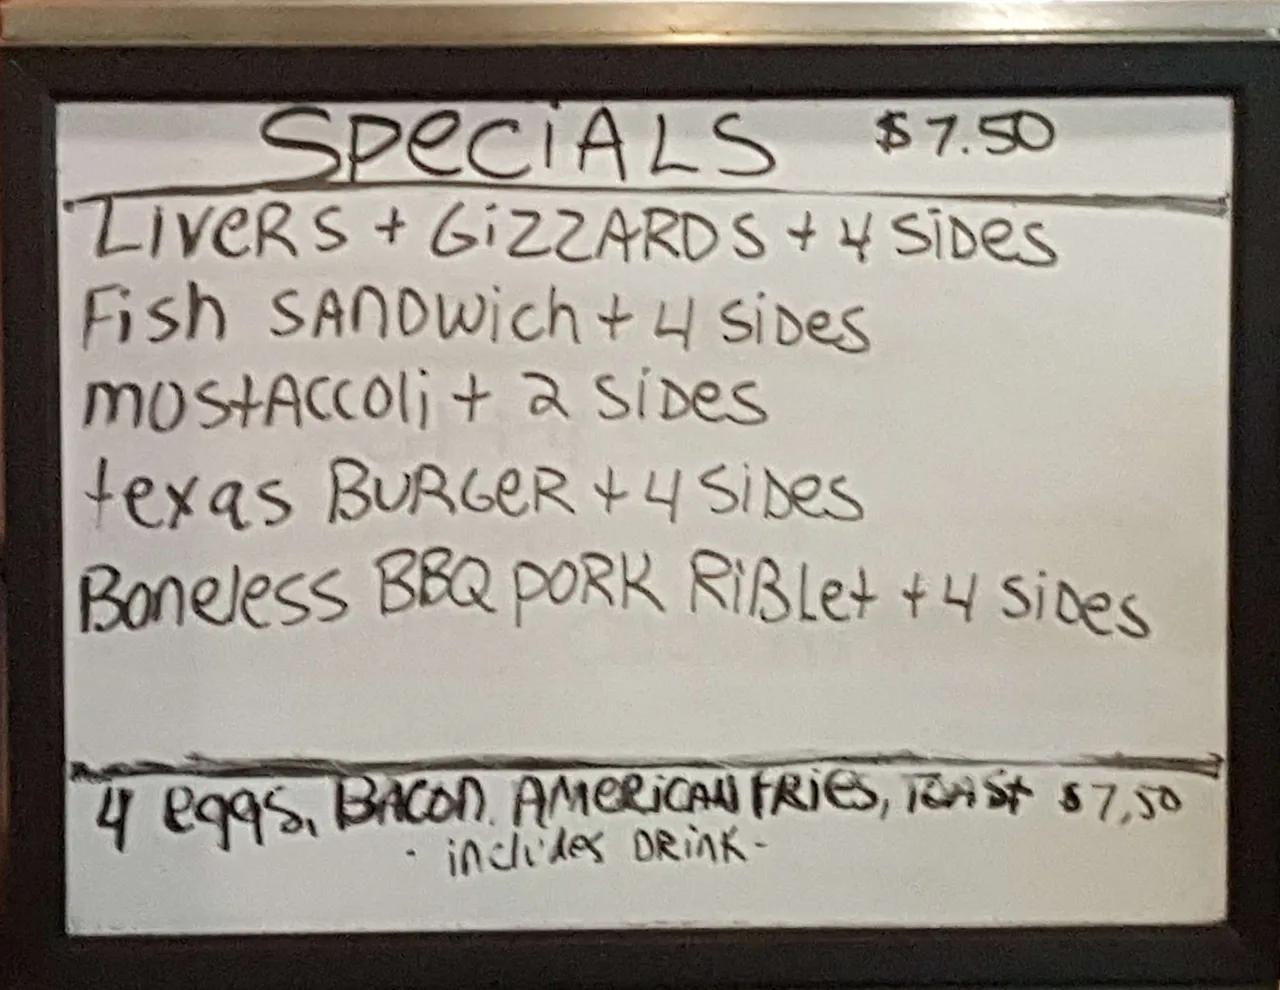 SPeCiALS $7.50
LiveRS + GiZZARDS + 4 SiDes
Fish SANDwich + 4 SiDes
mostACColi + 2 SiDes
texas BURGeR + 4 SiDes
Boneless BBQ PORK RiBLet + 4 SiDes
4 eggs, BACON, AMeRiCAN FRies, TOASt $7,50
- includes DRiNK -